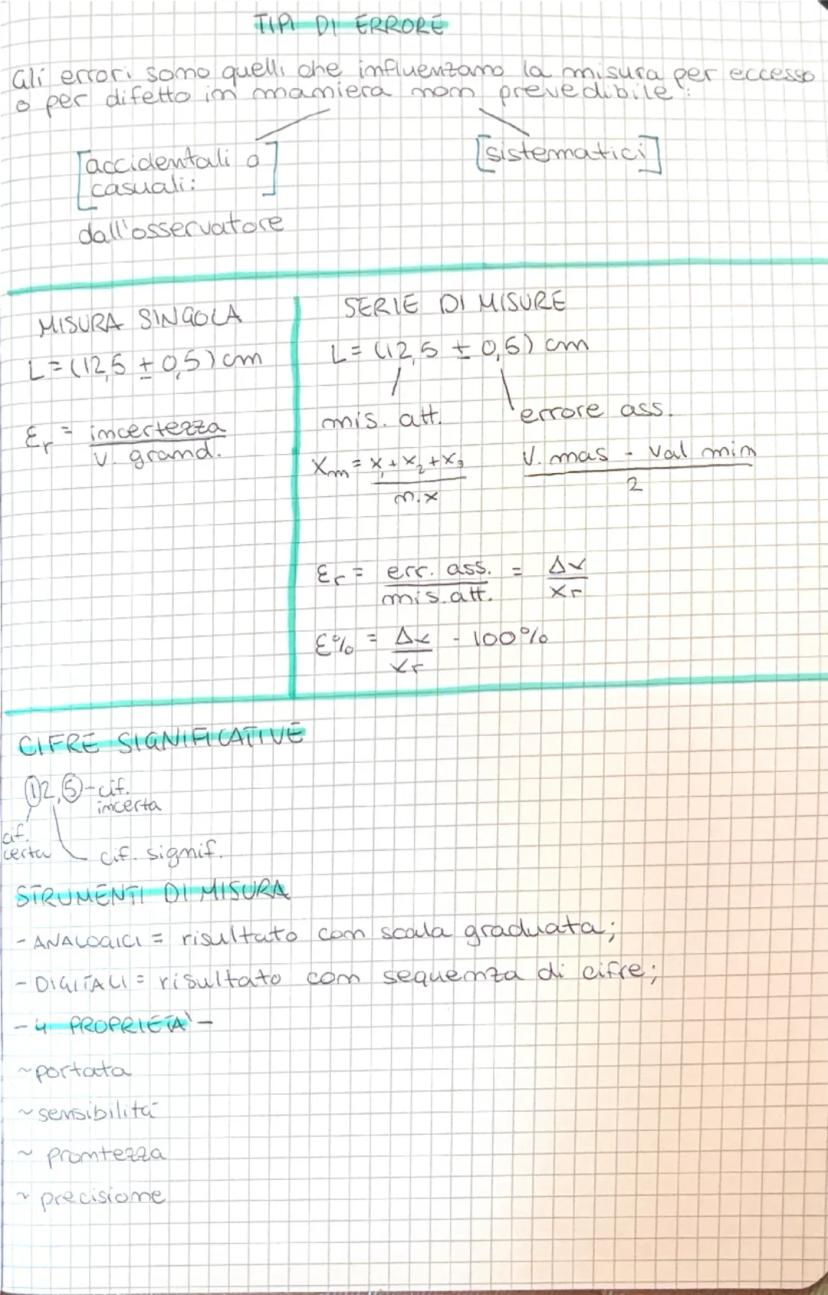 TIPI DI ERRORE
Gli errori sono quelli che influenzano la misura per eccesso
o per difetto in maniera non prevedibile:
[accidentali o
casuali:]
[sistematici]
dall'osservatore
MISURA SINGOLA
L=(12,5 ± 0,5) cm
Er = incertezza
v. grand.
SERIE DI MISURE
L= (12,5 ± 0,5) cm
mis. att.
errore ass.
Xm = x1+x2+x3
n.x
V. mas - val min
2
Er = err. ass. = Δx
mis.att. xr
E% = Δx - 100%
xr
CIFRE SIGNIFICATIVE
12,5-cif.
incerta
cif.
certa
cif. signif.
STRUMENTI DI MISURA
- ANALOGICI = risultato con scala graduata;
- DIGITALI = risultato con sequenza di cifre;
- 4 PROPRIETA' -
~portata
~sensibilità
~ prontezza
~ precisione